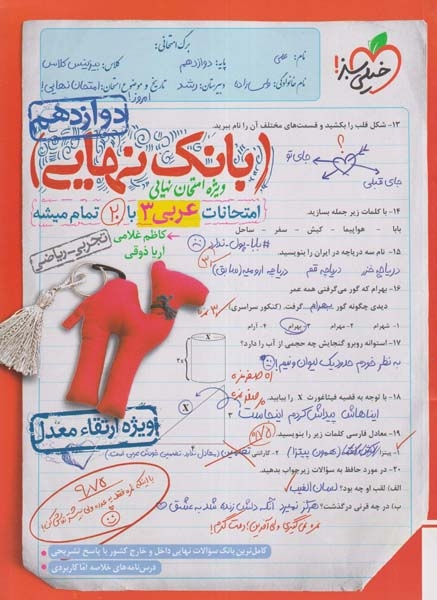 خیلی سبز!
برگ امتحانی:
نام:
پایه: دوازدهم
کلاس: بیزینس کلاس
نام خانوادگی:
دبیرستان: رشد
تاریخ و موضوع امتحان: امتحان نهایی!
امروز!
دوازدهم
۱۳- شکل قلب را بکشید و قسمت‌های مختلف آن را نام ببرید.
؟
جای تو
جای قبلی
(بانک نهایی)
ویژه امتحان نهایی
امتحانات عربی ۳ با ۲۰ تمام میشه
کاظم غلامی
آریا ذوقی
تجربی-ریاضی
۱۴- با کلمات زیر جمله بسازید.
بابا - هواپیما - کیش - سفر - ساحل
بابا-پول-نظر
۱۵- نام سه دریاچه در ایران را بنویسید.
دریاچه خزر دریاچه قم دریاچه ارومیه (سابق)
۱۶- بهرام که گور می‌گرفتی همه عمر
دیدی چگونه گور بهرام گرفت. (کنکور سراسری)
۱- شهرام ۲- مهرام ۳- بهرام ۴- آرام
۱۷- استوانه روبرو گنجایش چه حجمی از آب را دارد؟
به نظر خودم حدود یک لیوان و نیم!
X
۲x
۱۸- با توجه به قضیه فیثاغورث X را بیابید.
ایناهاش پیداش کردم اینجاست
X
۳
ویژه ارتقاء معدل
۱۹- معادل فارسی کلمات زیر را بنویسید.
۰/۷۵
۱- پیتزا (همون پیتزا) ۲- گارانتی تضمین
۲۰- در مورد حافظ به سؤالات زیر جواب بدهید.
الف) لقب او چه بود؟ لسان الغیب
ب) در چه قرنی درگذشت؟ هرگز نمیرد آنکه دلش زنده شد به عشق
۹/۷۵
کامل‌ترین بانک سؤالات نهایی داخل و خارج کشور با پاسخ تشریحی
درس‌نامه‌های خلاصه اما کاربردی